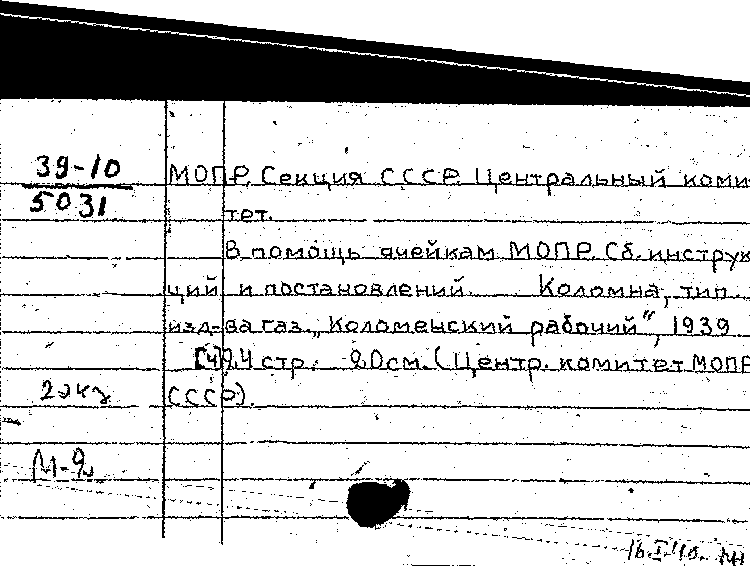 39-10
5031
МОПР. Секция СССР. Центральный коми-
тет.
В помощь ячейкам МОПР. Сб. инструк-
ций и постановлений. Коломна, тип.
изд-ва газ. „Коломенский рабочий“, 1939
[4] 24 стр. 20 см. (Центр. комитет МОПР
СССР).
2 экз
М-2
16.I.40.